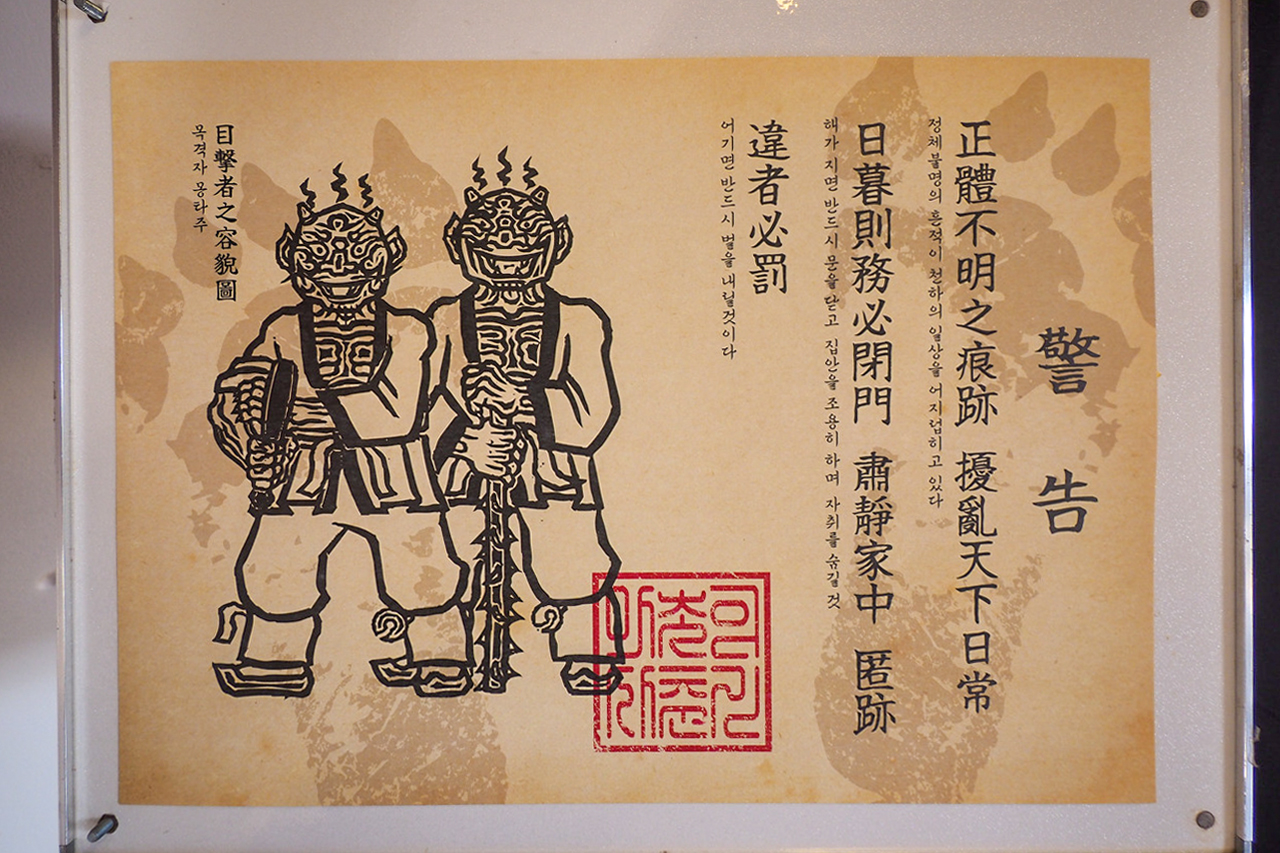 警告
正體不明之痕跡 擾亂天下日常
정체불명의 흔적이 천하의 일상을 어지럽히고 있다
日暮則務必閉門 肅靜家中 匿跡
해가 지면 반드시 문을 닫고 집안을 조용히 하며 자취를 숨길 것
違者必罰
어기면 반드시 벌을 내릴것이다
目擊者之容貌圖
목격자 몽타주